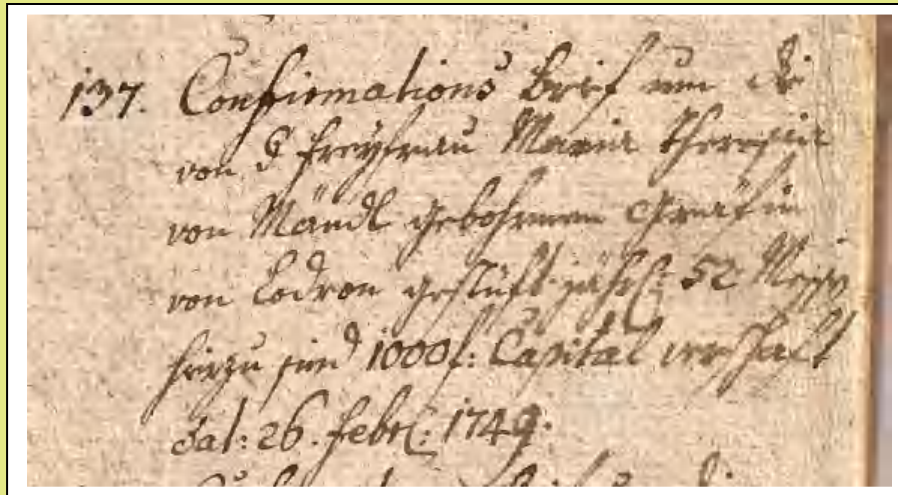 137. Confirmations Brief um die
von d Freyfrau Maria Theresia
von Mändl gebohrnen Gräfin
von Lodron gestüft jährl: 52 Messen
hierzu sind 1000 f: Capital verschaft
dat: 26. Febr: 1749.